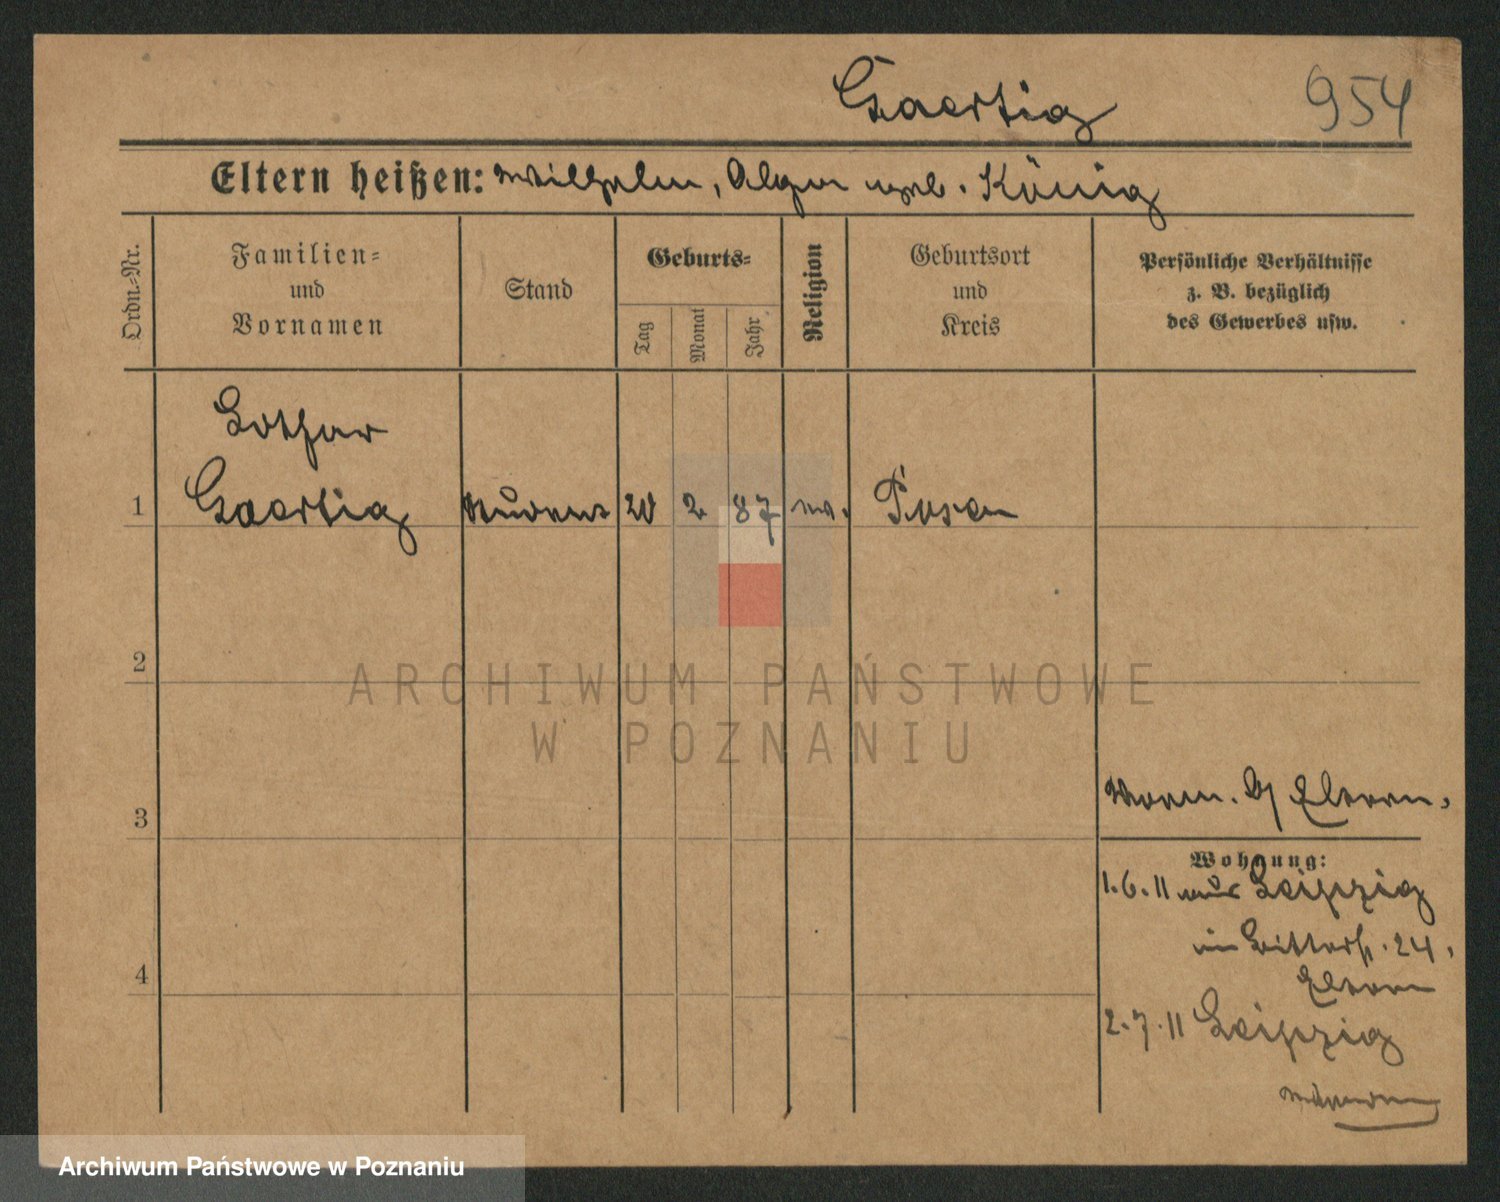 Gaertig 954
Eltern heißen: Wilhelm, Olga geb. König
Ordn.-Nr.
Familien-
und
Vornamen
Stand
Geburts-
Tag
Monat
Jahr
Religion
Geburtsort
und
Kreis
Persönliche Verhältnisse
z. B. bezüglich
des Gewerbes usw.
Lothar
1 Gaertig Student 20 2 87 ev. Posen
2
ARCHIWUM PAŃSTWOWE
W POZNANIU
Eltern.
3
Wohnung:
1.6.11 aus Leipzig
in Ritterstr. 24,
Eltern
4
2.7.11 Leipzig
Archiwum Państwowe w Poznaniu